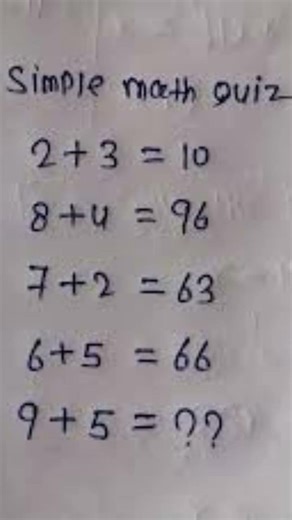 Simple math quiz
2+3 = 10
8+4 = 96
7+2 = 63
6+5 = 66
9+5 = ??